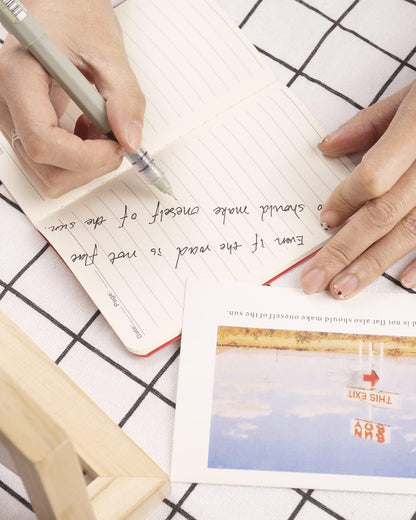 Date:
Page:
Even if the road is not flat
should make oneself of the sun..
is not flat also should make oneself of the sun.
SUN
BOY
THIS EXIT